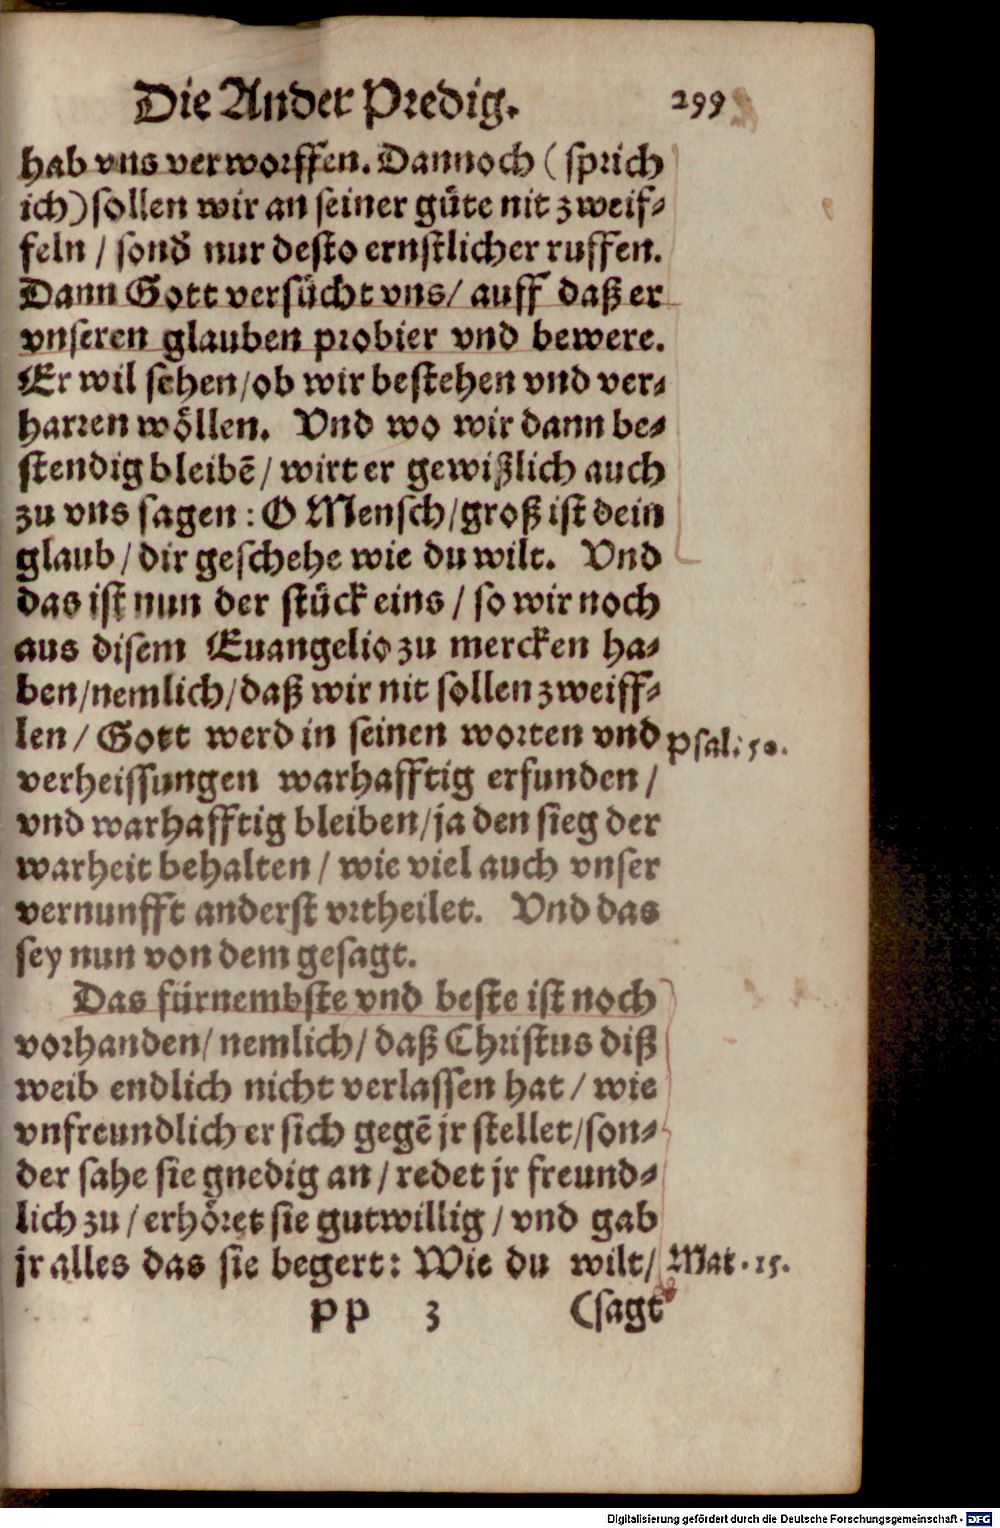 Die Ander Predig. 299
hab vns verworffen. Dannoch (sprich
ich) sollen wir an seiner güte nit zweif⸗
feln / sonď nur desto ernstlicher ruffen.
Dann Gott versücht vns / auff daß er
vnseren glauben probier vnd bewere.
Er wil sehen / ob wir bestehen vnd ver⸗
harren wöllen. Vnd wo wir dann be⸗
stendig bleibē / wirt er gewißlich auch
zu vns sagen : O Mensch / groß ist dein
glaub / dir geschehe wie du wilt. Vnd
das ist nun der stück eins / so wir noch
aus disem Euangelio zu mercken ha⸗
ben / nemlich / daß wir nit sollen zweiff⸗
len / Gott werd in seinen worten vnd
Psal. 50.
verheissungen warhafftig erfunden /
vnd warhafftig bleiben / ja den sieg der
warheit behalten / wie viel auch vnser
vernunfft anderst vrtheilet. Vnd das
sey nun von dem gesagt.
Das fürnembste vnd beste ist noch
vorhanden / nemlich / daß Christus diß
weib endlich nicht verlassen hat / wie
vnfreundlich er sich gegē jr stellet / son⸗
der sahe sie gnedig an / redet jr freund⸗
lich zu / erhöret sie gutwillig / vnd gab
jr alles das sie begert : Wie du wilt /
Mat. 15.
pp 3 (sagt
Digitalisierung gefördert durch die Deutsche Forschungsgemeinschaft - DFG